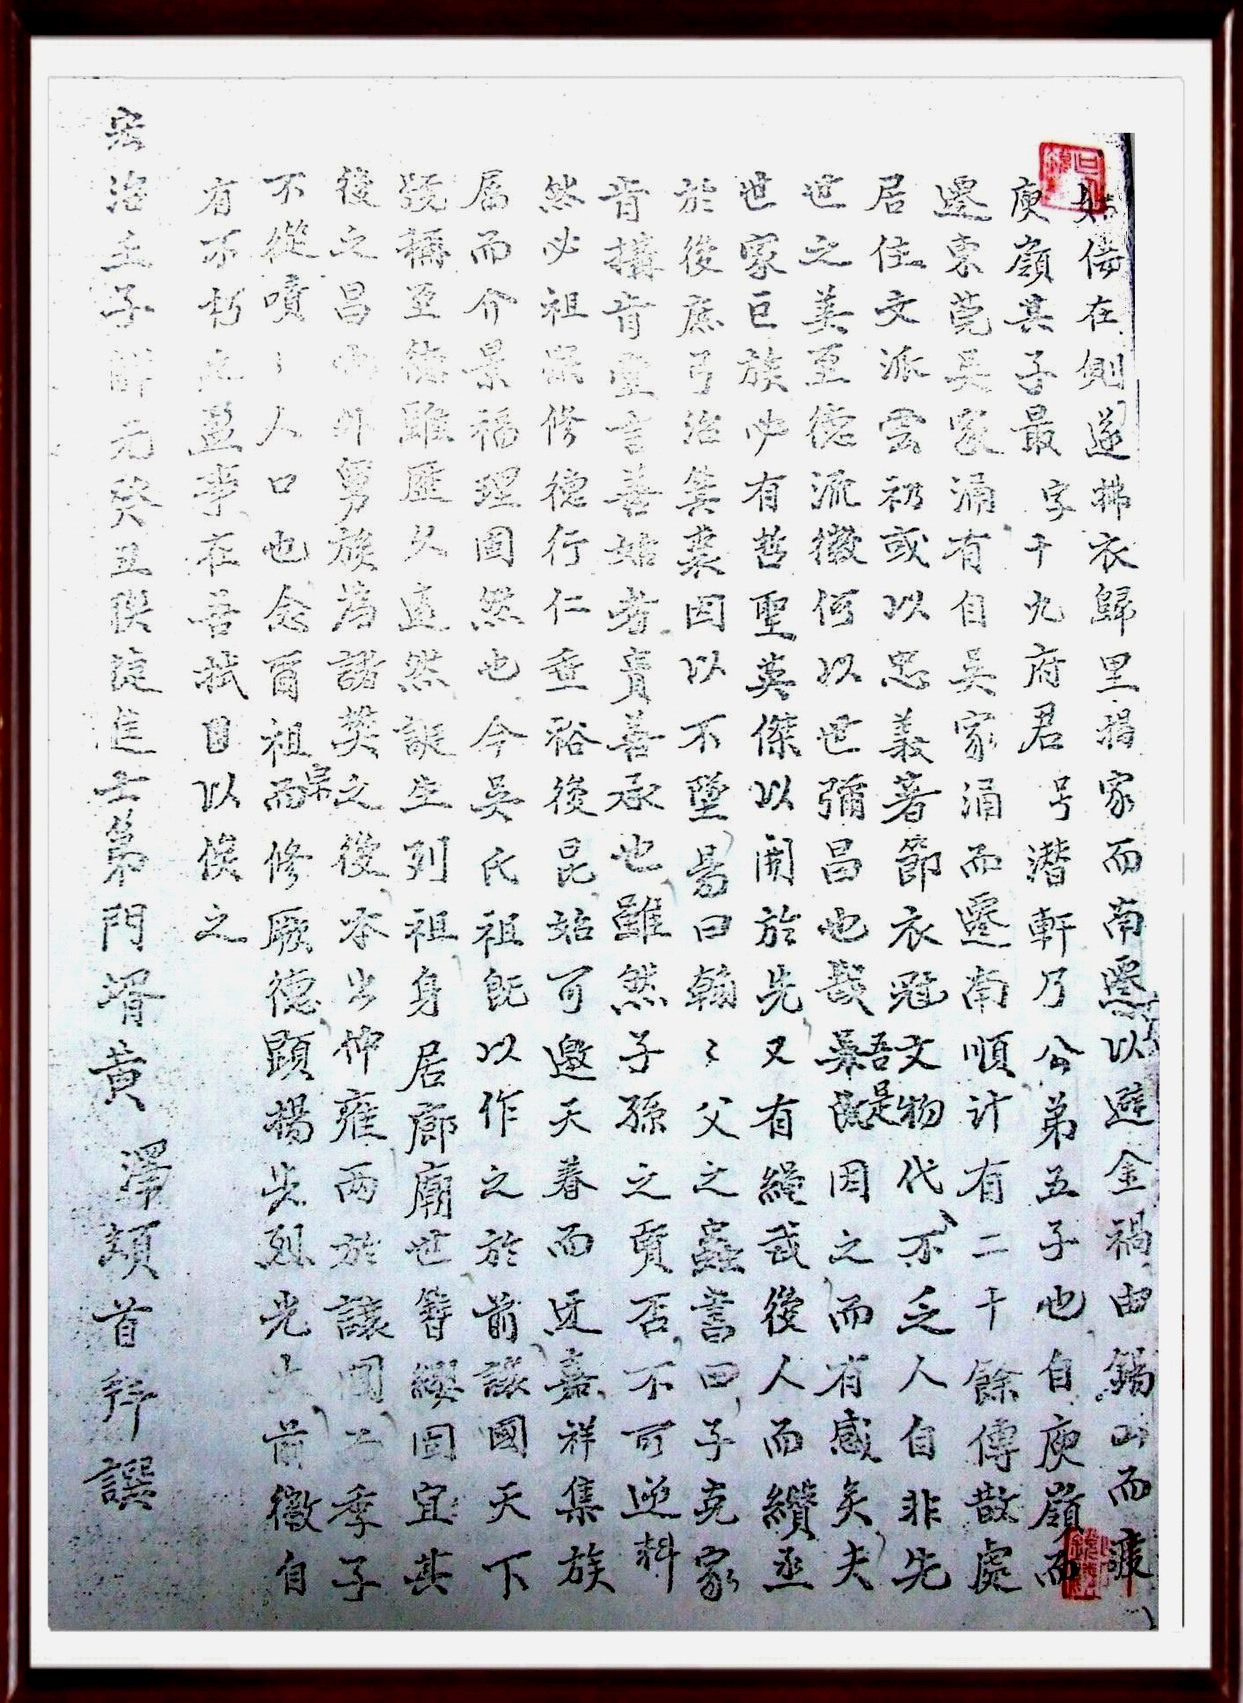 倚在側遂拂衣歸里揚家而南遷以避金禍由錫山而
庾嶺其子最字千九府君号潛軒乃公弟五子也自庾嶺而
遷東莞吳家涌有自吳家涌而遷南順计有二十餘傳散處
居住文派雲礽或以忠義著節衣冠文物代不乏人自非先
世之美至德流徽何以世彌昌也哉吾是因之而有感矣夫
世家巨族必有哲聖英傑以開於先又有繩武後人而纘丞
於後庶弓治箕裘因以不墜易曰幹〻父之蠱書曰子克家
肯搆肯堂言善始者賣善承也雖然子孫之賢否不可逆料
然必祖宗修德行仁垂裕後昆始可邀天眷而迓嘉祥集族
属而介景福理固然也今吳氏祖既以作之於前讓國天下
既稱至德雖歷久遠然誕生列祖身居廊廟世簪纓固宜其
後之昌也外舅族為諸樊之後本出仲雍而於讓國之季子
不從嘖〻人口也念爾祖宗而修厥德顕揚先烈光大前徽自
有不朽之盛事在吾拭目以俟之
治壬子解元癸丑聯捷進士第門壻黃 澤頓首拜譔